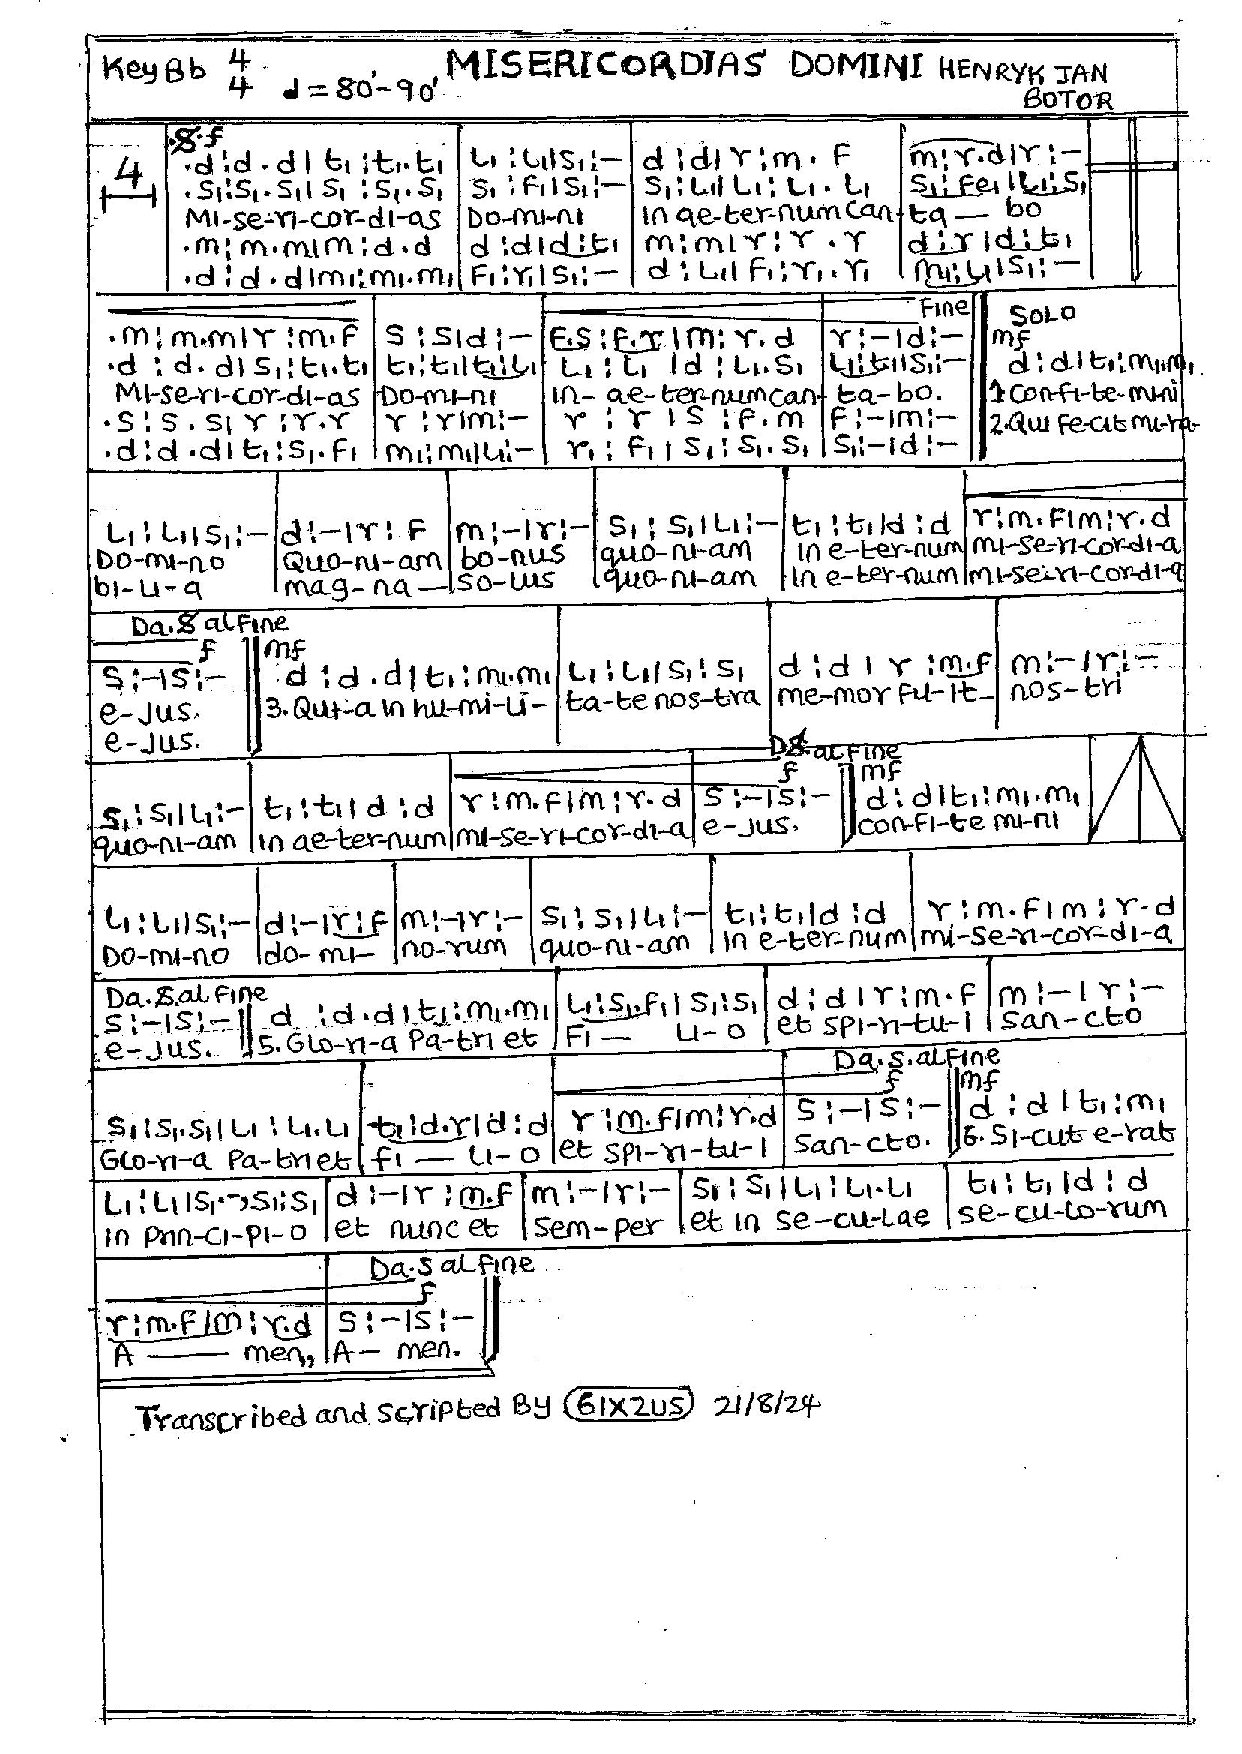 Key Bb 4/4 ♩=80'-90' MISERICORDIAS DOMINI HENRYK JAN BOTOR
𝄋 f
4 .d:d.d|t₁:t₁.t₁ | L₁:L₁|S₁:- | d:d|r:m.F | m:r.d|r:-
.S₁:S₁.S₁|S₁:S₁.S₁ | S₁:F₁|S₁:- | S₁:L₁|L₁:L₁.L₁ | S₁:Fe₁|L₁:S₁
Mi-se-ri-cor-di-as Do-mi-ni in ae-ter-num can-ta — bo
.m:m.m|m:d.d | d:d|d:t₁ | m:m|r:r.r | d:r|d:t₁
.d:d.d|m₁:m₁.m₁ | F₁:r₁|S₁:- | d:L₁|F₁:r₁.r₁ | m₁:L₁|S₁:-
Fine SOLO
.m:m.m|r:m.F | S:S|d:- | F.S:F.r|m:r.d | r:-|d:- mf
.d:d.d|S₁:t₁.t₁ | t₁:t₁|t₁:L₁ | L₁:L₁|d:L₁.S₁ | L₁:t₁|S₁:- d:d|t₁:m₁.m₁
Mi-se-ri-cor-di-as Do-mi-ni in- ae-ter-num can-ta-bo. 1. Con-fi-te-mini
.S:S.S|r:r.r | r:r|m:- | r:r|S:F.m | F:-|m:- 2. Qui Fe-cit mi-ra-
.d:d.d|t₁:S₁.F₁ | m₁:m₁|L₁:- | r₁:F₁|S₁:S₁.S₁ | S₁:-|d:-
L₁:L₁|S₁:- | d:-|r:F | m:-|r:- | S₁:S₁|L₁:- | t₁:t₁|d:d | r:m.F|m:r.d
Do-mi-no Quo-ni-am bo-nus quo-ni-am in e-ter-num mi-se-ri-cor-di-a
bi-li-a mag-na — so-lus quo-ni-am in e-ter-num mi-se-ri-cor-di-a
Da.𝄋 al Fine
f mf
S:-|S:- d:d.d|t₁:m₁.m₁ | L₁:L₁|S₁:S₁ | d:d|r:m.f | m:-|r:-
e-jus. 3. Qui-a in hu-mi-li-ta-te nos-tra me-mor fu-it- nos-tri
e-jus.
D𝄋 al Fine
f mf
S₁:S₁|L₁:- | t₁:t₁|d:d | r:m.F|m:r.d | S:-|S:- d:d|t₁:m₁.m₁
quo-ni-am in ae-ter-num mi-se-ri-cor-di-a e-jus. con-fi-te mi-ni
L₁:L₁|S₁:- | d:-|r:F | m:-|r:- | S₁:S₁|L₁:- | t₁:t₁|d:d | r:m.F|m:r.d
Do-mi-no do-mi-no-rum quo-ni-am in e-ter-num mi-se-ri-cor-di-a
Da.S.al Fine
S:-|S:- d:d.d|t₁:m₁.m₁ | L₁:S₁.F₁|S₁:S₁ | d:d|r:m.F | m:-|r:-
e-jus. 5. Glo-ri-a Pa-tri et Fi — li-o et spi-ri-tu-i San-cto
Da.S.al Fine
f mf
S₁:S₁.S₁|L₁:L₁.L₁ | t₁:d.r|d:d | r:m.F|m:r.d | S:-|S:- d:d|t₁:m₁
Glo-ri-a Pa-tri et fi — li-o et spi-ri-tu-i San-cto. 6. Si-cut e-rat
L₁:L₁|S₁.,S₁:S₁ | d:-|r:m.f | m:-|r:- | S₁:S₁|L₁:L₁.L₁ | t₁:t₁|d:d
in prin-ci-pi-o et nunc et sem-per et in se-cu-lae se-cu-lo-rum
Da.S al Fine
f
r:m.F|m:r.d | S:-|S:-
A — men, A — men.
Transcribed and scripted By 61X2US 21/8/24